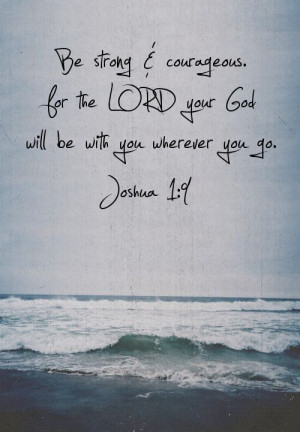 Be strong & courageous.
for the LORD your God
will be with you wherever you go.
Joshua 1:9